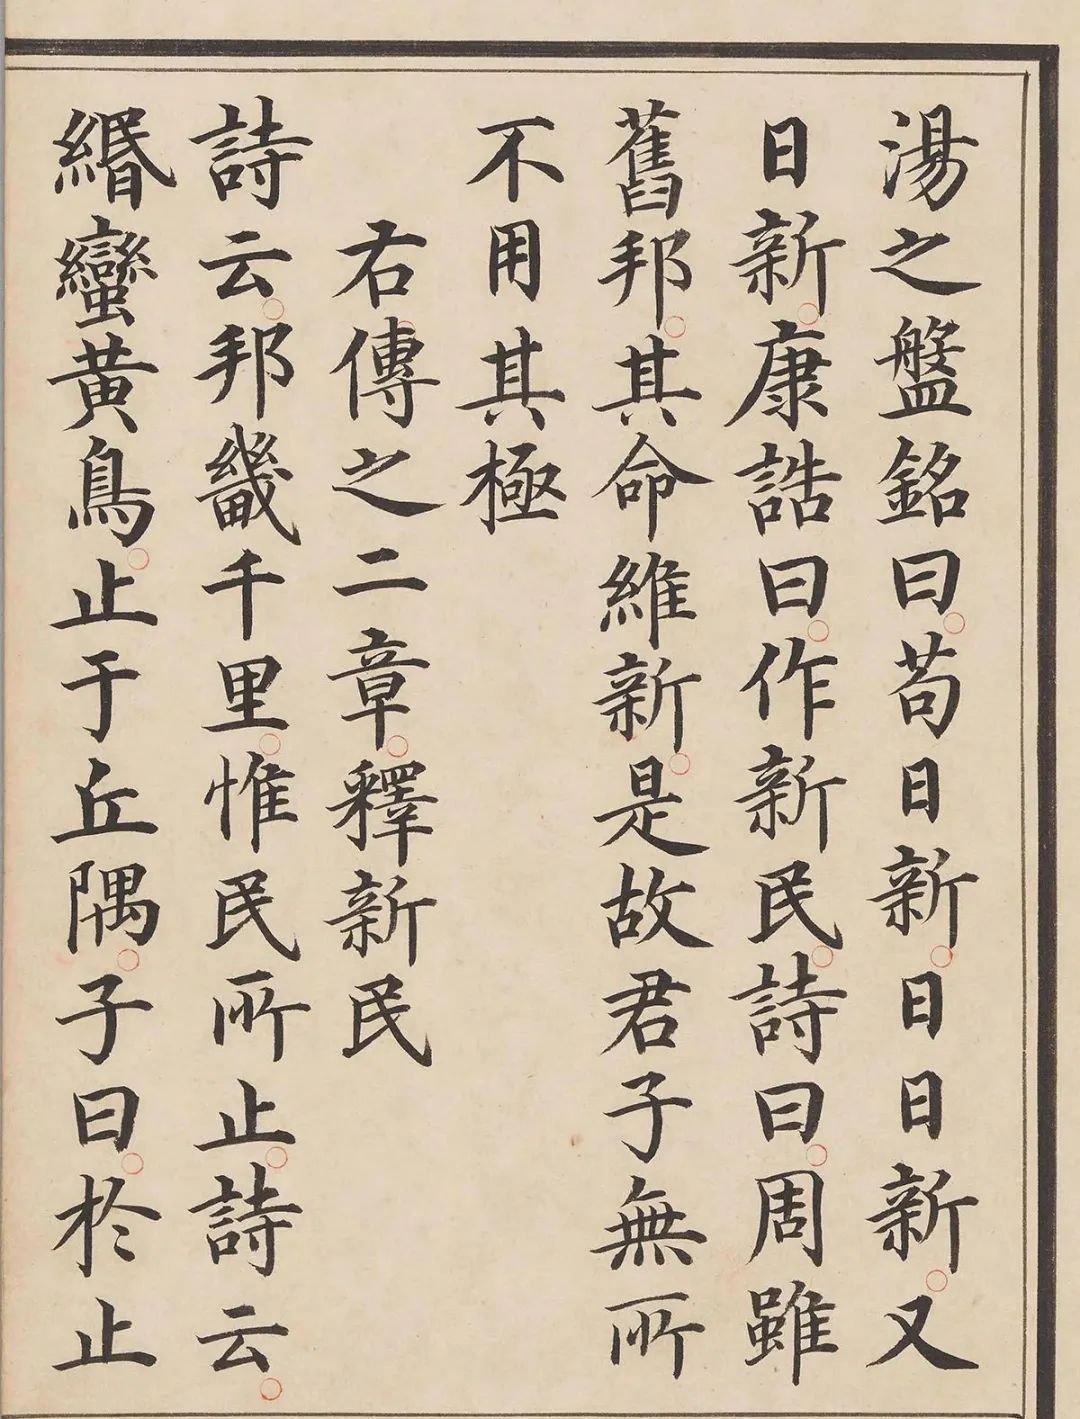 湯之盤銘曰。苟日新。日日新。又
日新。康誥曰。作新民。詩曰。周雖
舊邦。其命維新。是故君子無所
不用其極
右傳之二章。釋新民
詩云。邦畿千里。惟民所止。詩云。
緡蠻黃鳥。止于丘隅。子曰。於止